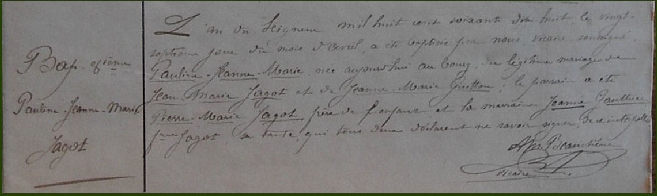 Bap. 
Pauline Jeanne Marie
Jagot
L'an du Seigneur mil huit cent soixante dix huit le vingt
septième jour du mois d'Avril a été baptisée par nous vicaire soussigné
Pauline Jeanne Marie née aujourd'hui au bourg du légitime mariage de
Jean Marie Jagot et de Jeanne Marie ; le parrain a été
Pierre Marie Jagot père de l'enfant et la marraine Jeanne
Jagot qui tous deux déclarent ne savoir signer
vicaire